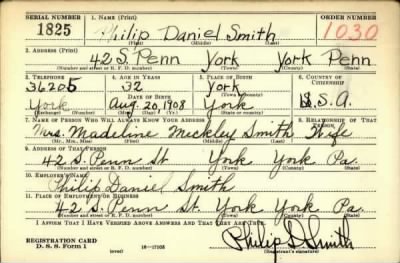 SERIAL NUMBER 1. NAME (Print) ORDER NUMBER
1825 Philip Daniel Smith 1030
(First) (Middle) (Last)
2. ADDRESS (Print)
42 S. Penn York York Penn
(Number and street or R. F. D. number) (Town) (County) (State)
3. TELEPHONE 4. AGE IN YEARS 5. PLACE OF BIRTH 6. COUNTRY OF CITIZENSHIP
36205 32 York
York Aug. 20, 1908 York U.S.A.
(Exchange) (Number) (Mo.) (Day) (Yr.) (State or country)
7. NAME OF PERSON WHO WILL ALWAYS KNOW YOUR ADDRESS 8. RELATIONSHIP OF THAT PERSON
Mrs. Madeline Meckley Smith Wife
(Mr., Mrs., Miss) (First) (Middle) (Last)
9. ADDRESS OF THAT PERSON
42 S. Penn St. York York Pa.
(Number and street or R. F. D. number) (Town) (County) (State)
10. EMPLOYER'S NAME
Philip Daniel Smith
11. PLACE OF EMPLOYMENT OR BUSINESS
42 S. Penn St. York York Pa.
(Number and street or R. F. D. number) (Town) (County) (State)
I AFFIRM THAT I HAVE VERIFIED ABOVE ANSWERS AND THAT THEY ARE TRUE.
REGISTRATION CARD
D. S. S. Form 1 (over) 16-17105 Philip D. Smith
(Registrant's signature)